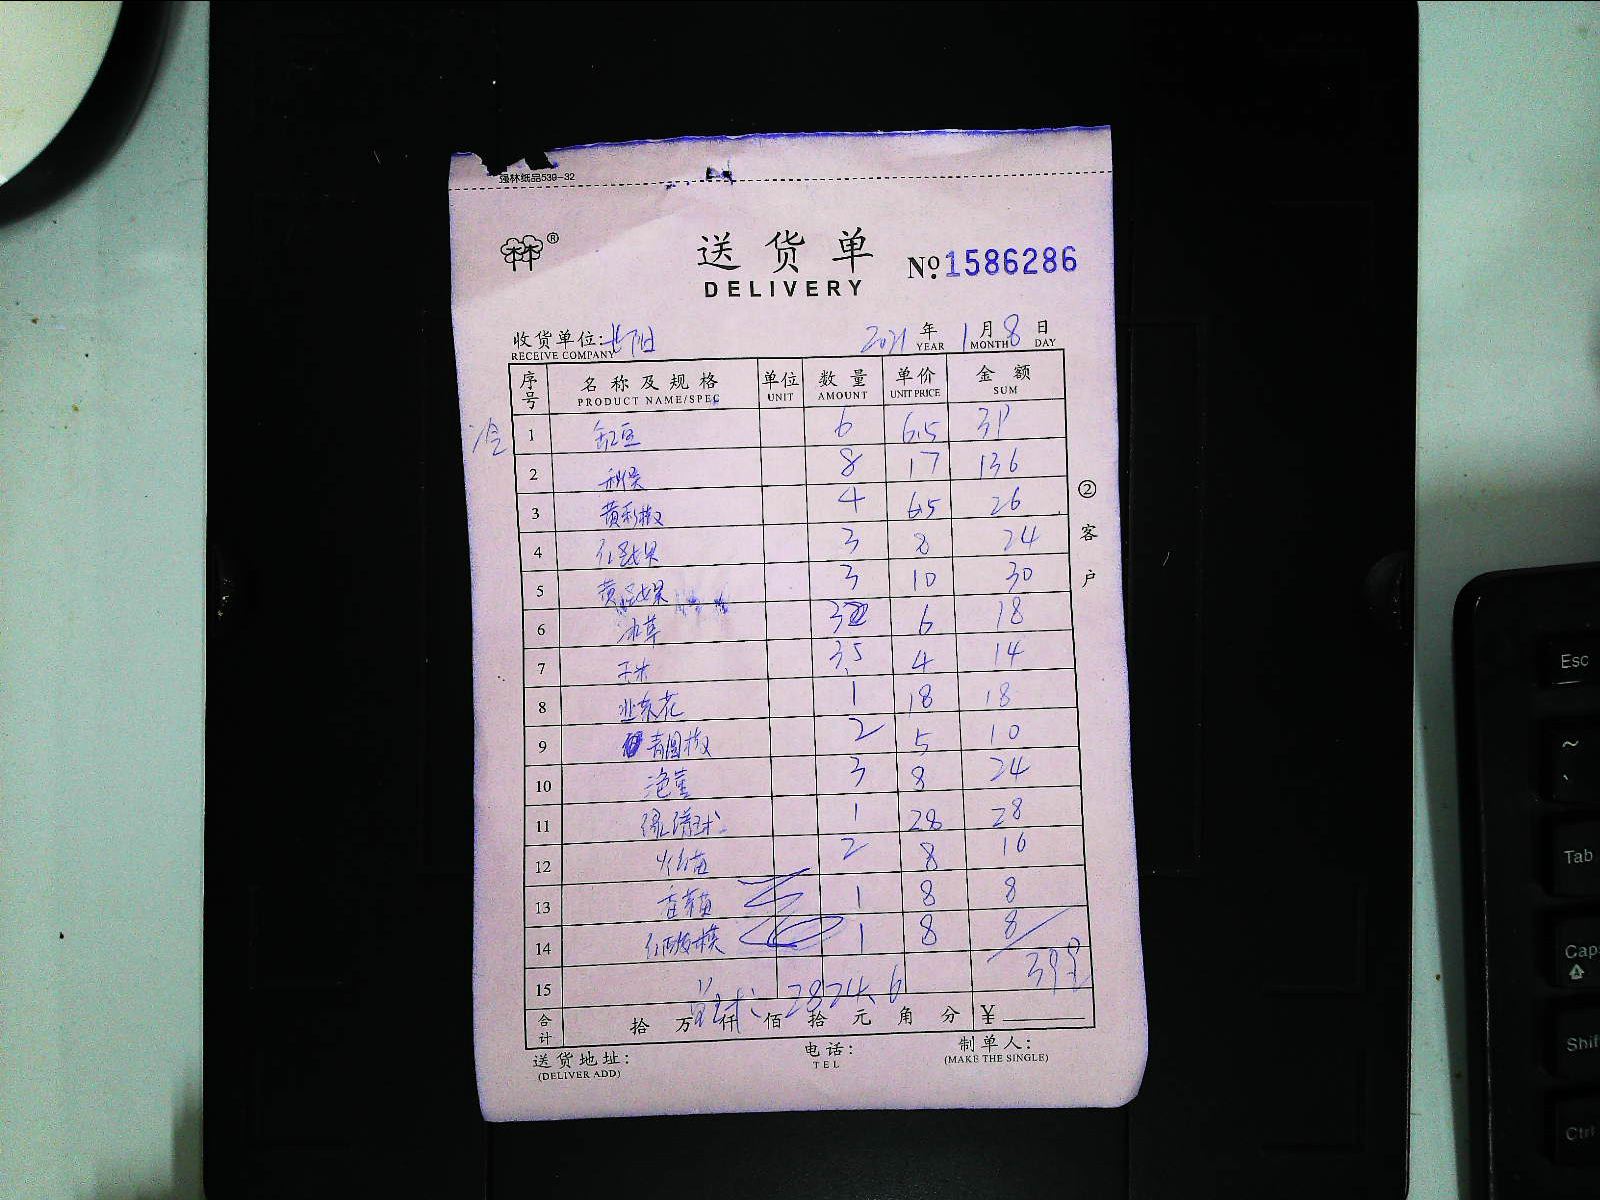 强林纸品539-32
林林®
送货单
№1586286
DELIVERY
收货单位: 2021年1月8日
RECEIVE COMPANY YEAR MONTH DAY
序号 名称及规格 单位 数量 单价 金额
PRODUCT NAME/SPEC UNIT AMOUNT UNIT PRICE SUM
冷 1 缸豆 6 6.5 39
2 8 17 136
3 黄彩椒 4 6.5 26
4 红圣女果 3 8 24
5 黄圣女果 3 10 30
6 冰草 3 6 18
7 玉米 3.5 4 14
8 韭菜花 1 18 18
9 青圆椒 2 5 10
10 3 8 24
11 1 28 28
12 2 8 16
13 香菜苗 1 8 8
14 1 8 8
15 399
2824.6
合计 拾 万 仟 佰 拾 元 角 分 ¥
②客户
送货地址: 电话: 制单人:
(DELIVER ADD) TEL (MAKE THE SINGLE)
Esc
~
`
Tab
Caps
Shift
Ctrl